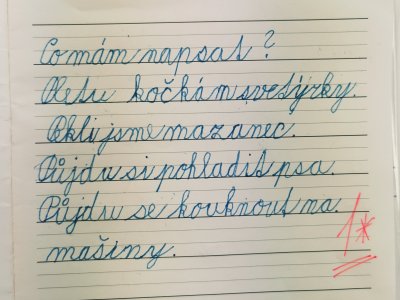 Co mám napsat?
Pletu kočkám svetýrky.
Pekli jsme mazanec.
Půjdu si pohladit psa.
Půjdu se kouknout na
mašiny.
1*